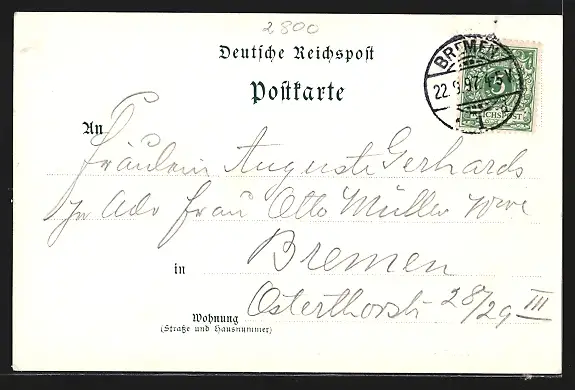 2800
Deutsche Reichspost
Postkarte
BREMEN
22.9.97
REICHSPOST
An
Fräulein Auguste Gerhards
Adr Frau Otto Müller Wwe
in Bremen
Wohnung Osterthorstr 28/29 III
(Straße und Hausnummer)